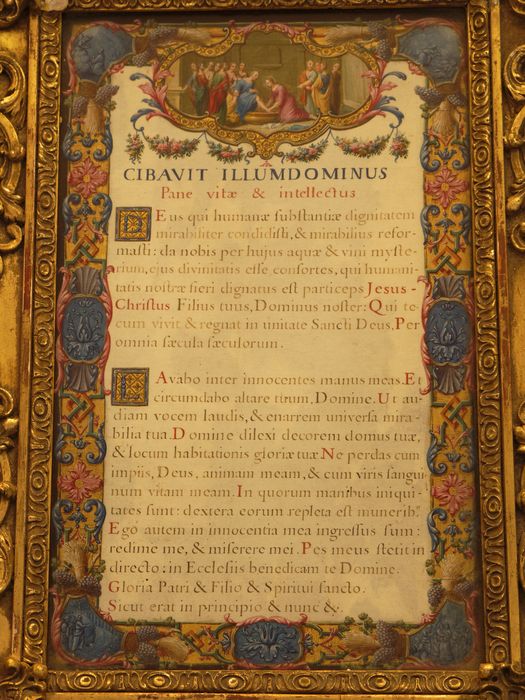 CIBAVIT ILLUM DOMINUS
Pane vitæ & intellectus
Deus qui humanæ substantiæ dignitatem
mirabiliter condidisti, & mirabilius refor-
masti: da nobis per hujus aquæ & vini myste-
rium, ejus divinitatis esse consortes, qui humani-
tatis nostræ fieri dignatus est particeps Jesus-
Christus Filius tuus, Dominus noster: Qui te-
cum vivit & regnat in unitate Sancti Deus, Per
omnia sæcula sæculorum.
Lavabo inter innocentes manus meas. Et
circumdabo altare tuum, Domine. Ut au-
diam vocem laudis, & enarrem universa mira-
bilia tua. Domine dilexi decorem domus tuæ,
& locum habitationis gloriæ tuæ Ne perdas cum
impiis, Deus, animam meam, & cum viris sangui-
num vitam meam. In quorum manibus iniqui-
tates sunt: dextera eorum repleta est munerib.
Ego autem in innocentia mea ingressus sum:
redime me, & miserere mei. Pes meus stetit in
directo: in Ecclesiis benedicam te Domine.
Gloria Patri & Filio & Spiritui sancto.
Sicut erat in principio & nunc &.